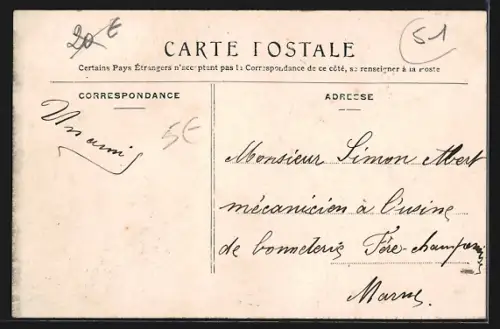 20 €
51
CARTE POSTALE
Certains Pays Étrangers n'acceptant pas la Correspondance de ce côté, se renseigner à la Poste
CORRESPONDANCE
Un ami
5€
ADRESSE
Monsieur Simon Albert
mécanicien à l'usine
de bonneterie Fère-champenoise
Marne